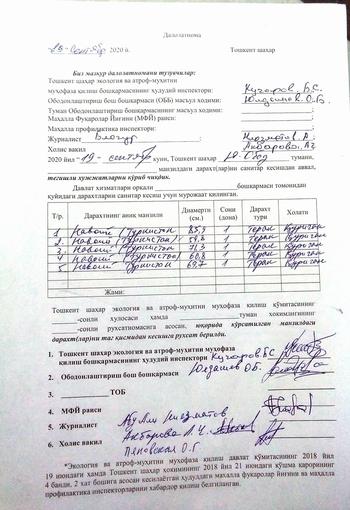 Далолатнома
25-сентябр 2020 й. Тошкент шаҳар
Биз мазкур далолатномани тузувчилар:
Тошкент шаҳар экология ва атроф-муҳитни
муҳофаза қилиш бошқармасининг ҳудудий инспектори: Кучаров Б.С.
Ободонлаштириш бош бошқармаси (ОББ) масъул ходими: Юлдашов О.Б.
Туман Ободонлаштириш бошқармасининг масъул ходими:
Маҳалла Фуқаролар Йиғини (МФЙ) раиси:
Маҳалла профилактика инспектори:
Журналист Блогер : Низматов А.
Холис вакил : Акбарова А.Ч.
2020 йил -19- сентябр куни, Тошкент шаҳар Ю-Обод тумани,
манзилдаги дарахт(лар)ни санитар кесишдан аввал,
тегишли ҳужжатларни кўриб чиқдик.
Давлат хизматлари орқали бошқармаси томонидан
қуйидаги дарахтларни санитар кесиш учун мурожаат қилинган.
Т/р. Дарахтнинг аниқ манзили Диаметри (см.) Сони (дона) Дарахт тури Ҳолати
1 Навоий (Туркистон) 85,9 1 Терак Қуриган
2. Навоий (Туркистон) 59,8 1 Терак Қуриган
3 Навоий (Туркистон) 71,3 1 Терак Қуриган
4 Навоий (Туркистон) 60,8 1 Терак Қуриган
5 Навоий (Туркистон) 69,7 1 Терак Қуриган
Жами:
Тошкент шаҳар экология ва атроф-муҳитни муҳофаза қилиш қўмитасининг
-сонли хулосаси ҳамда туман ҳокимининг
-сонли рухсатномасига асосан, юқорида кўрсатилган манзилдаги
дарахт(лар)ни таг қисмидан кесишга рухсат берилди.
1. Тошкент шаҳар экология ва атроф-муҳитни муҳофаза
қилиш бошқармасининг ҳудудий инспектори Кучаров Б С
2. Ободонлаштириш бош бошқармаси Юлдашов О Б.
3. ТОБ
4. МФЙ раиси
5. Журналист Низматов
6. Холис вакил Акбарова А. Ч.
О. Г.
*Экология ва атроф-муҳитни муҳофаза қилиш давлат қўмитасининг 2018 йил
19 июндаги ҳамда Тошкент шаҳар ҳокимининг 2018 йил 21 июндаги қўшма қарорининг
4 банди, 2 хат бошига асосан кесилаётган ҳудуддаги маҳалла фуқаролар йиғини ва маҳалла
профилактика инспекторларини хабардор қилиш белгиланган.